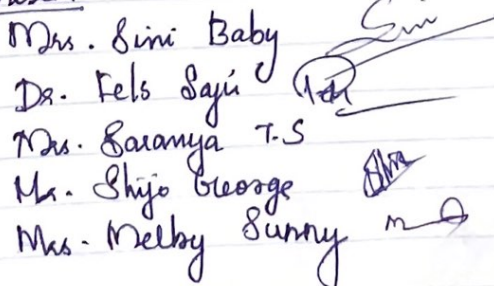 Mrs. Sini Baby
Dr. Fels Saju
Mrs. Saranya T.S
Mr. Shijo George
Mrs. Melby Sunny